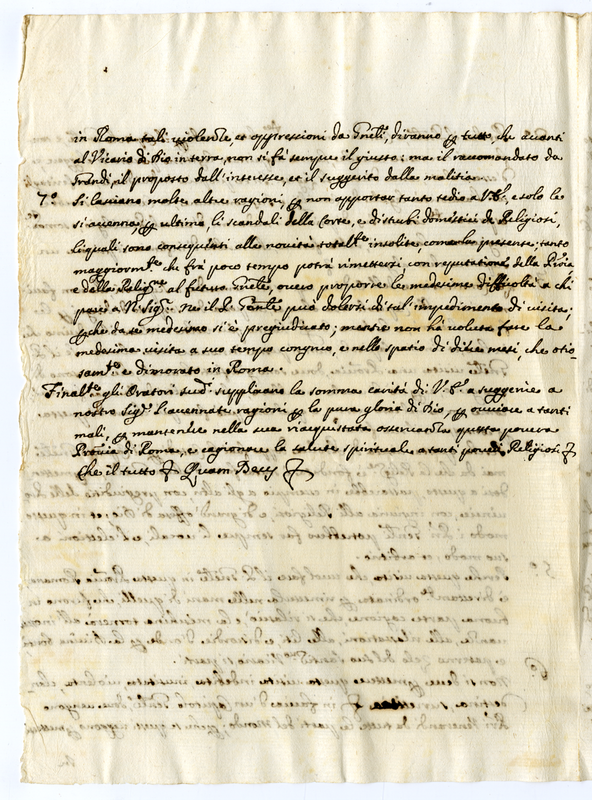 in Roma tali violenze, et oppressioni da Gnãli, diranno ꝑ tutto, che avanti
al Vicario di Dio in terra, non si fà sempre il giusto; ma il raccomandato da
Grandi, il proposto dall'interesse, et il suggerito dalla malitia.
7.° Si lasciano molte altre ragioni, ꝑ non apportar tanto tedio a V.E., e solo le
si accenna ꝑ ultima, li scandali della Corte, e disturbi domestici de Religiosi,
li quali sono conseguenti alle novità total.te insolite come la presente; tanto
maggiorm.te che frà poco tempo potrà rimettersi con reputatione della Prõia
e della Relig.ne al futuro Gñale, overo proporre le medesime difficoltà a chi
parerà a N. Sig.re Ne il P. Gñale può dolersi di tal' impedimento di visita;
ꝑche da se medesimo si è pregiudicato; mentre non ha voluto fare la
medesima visita a suo tempo congruo, e nello spatio di dieci mesi, che otio-
sam.te è dimorato in Roma.
Final.te gli Oratori sud.i supplicano la somma carità di V.E. a suggerire a
nostro Sig.re l'accennate ragioni ꝑ la pura gloria di Dio, ꝑ ovviare a tanti
mali, ꝑ mantenere nella sua riacquistata osservanza questa povera
Prõvia di Roma, e cagionare la salute spirituale a tanti poveri Religiosi.
Che il tutto Quam Deus